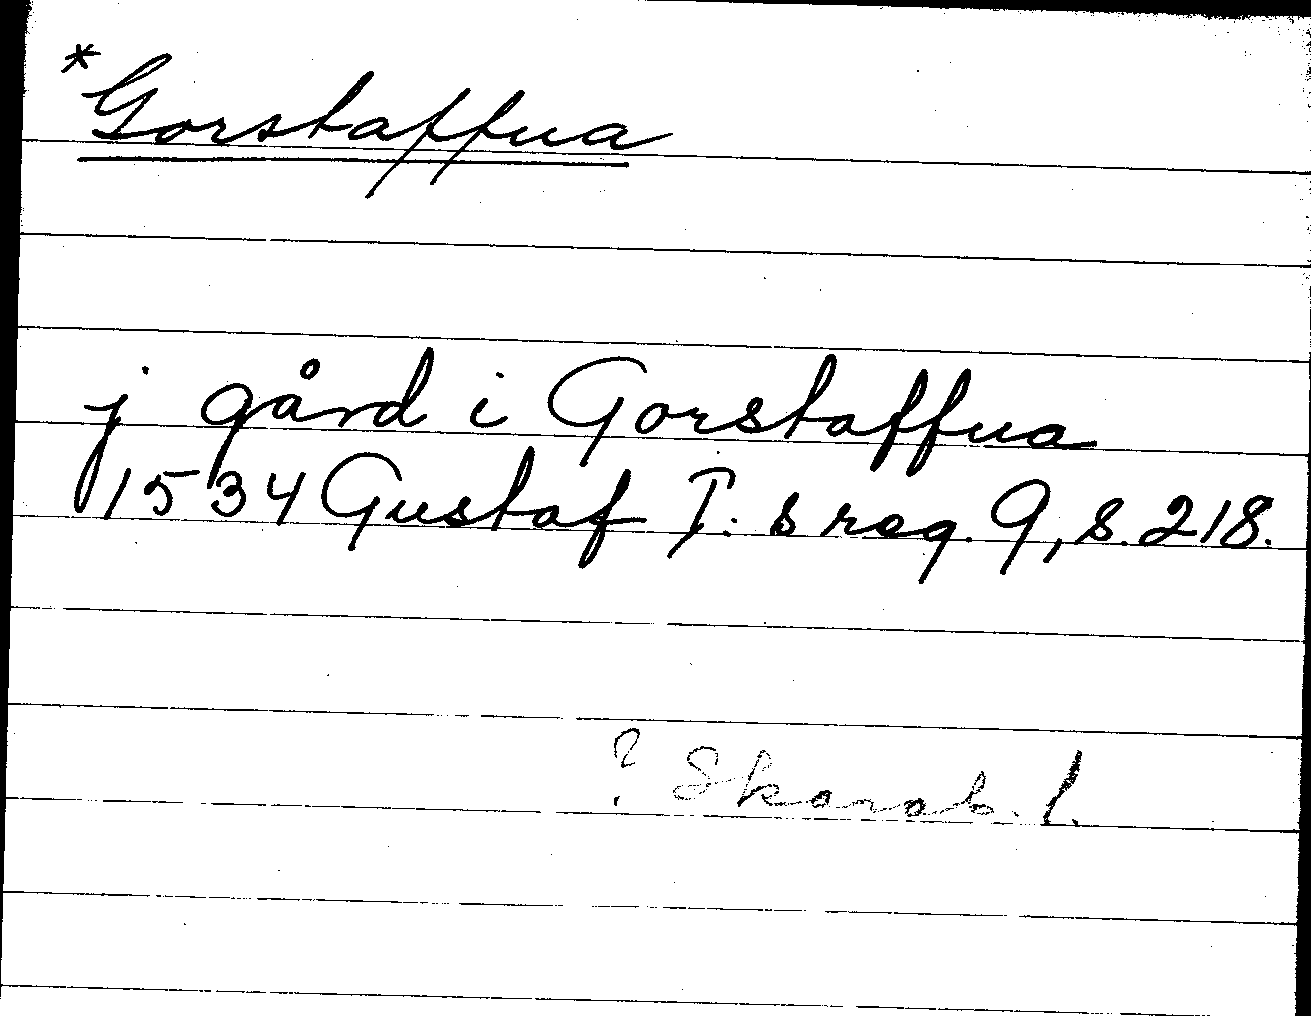 *Gorstaffua
j gård i Gorstaffua
1534 Gustaf I:s reg. 9, s. 218.
? Skarab. l.